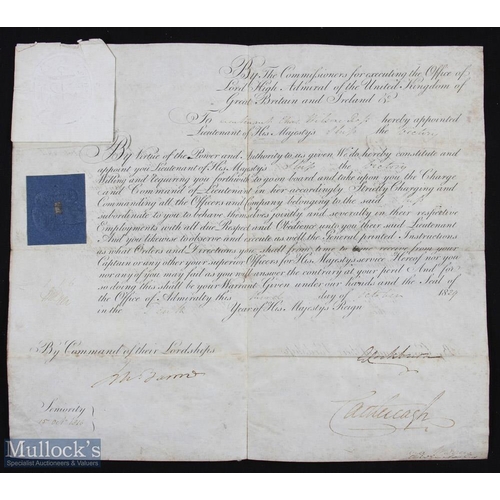 By The Commissioners for executing the Office of
Lord High Admiral of the United Kingdom of
Great Britain and Ireland &c
To hereby appointed
Lieutenant of His Majestys Ship the
By Virtue of the Power and Authority to us given We do hereby constitute and
appoint you Lieutenant of His Majesty's Ship the
Willing and requiring you forthwith to go on board and take upon you the Charge
and Command of Lieutenant in her accordingly. Strictly Charging and
Commanding all the Officers and Company belonging to the said
subordinate to you to behave themselves jointly and severally in their respective
Employments with all due Respect and Obedience unto you their said Lieutenant
And you likewise to observe and execute as well the General printed Instructions
as what Orders and Directions you shall from time to time receive from your
Captain or any other your superior Officers for His Majestys service Hereof nor you
nor any of you may fail as you will answer the contrary at your peril And for
so doing this shall be your Warrant Given under our hands and the Seal of
the Office of Admiralty this day of October 1829
in the Year of His Majestys Reign
By Command of their Lordships
Seniority
Castlereagh
Mullock's
Specialist Auctioneers & Valuers